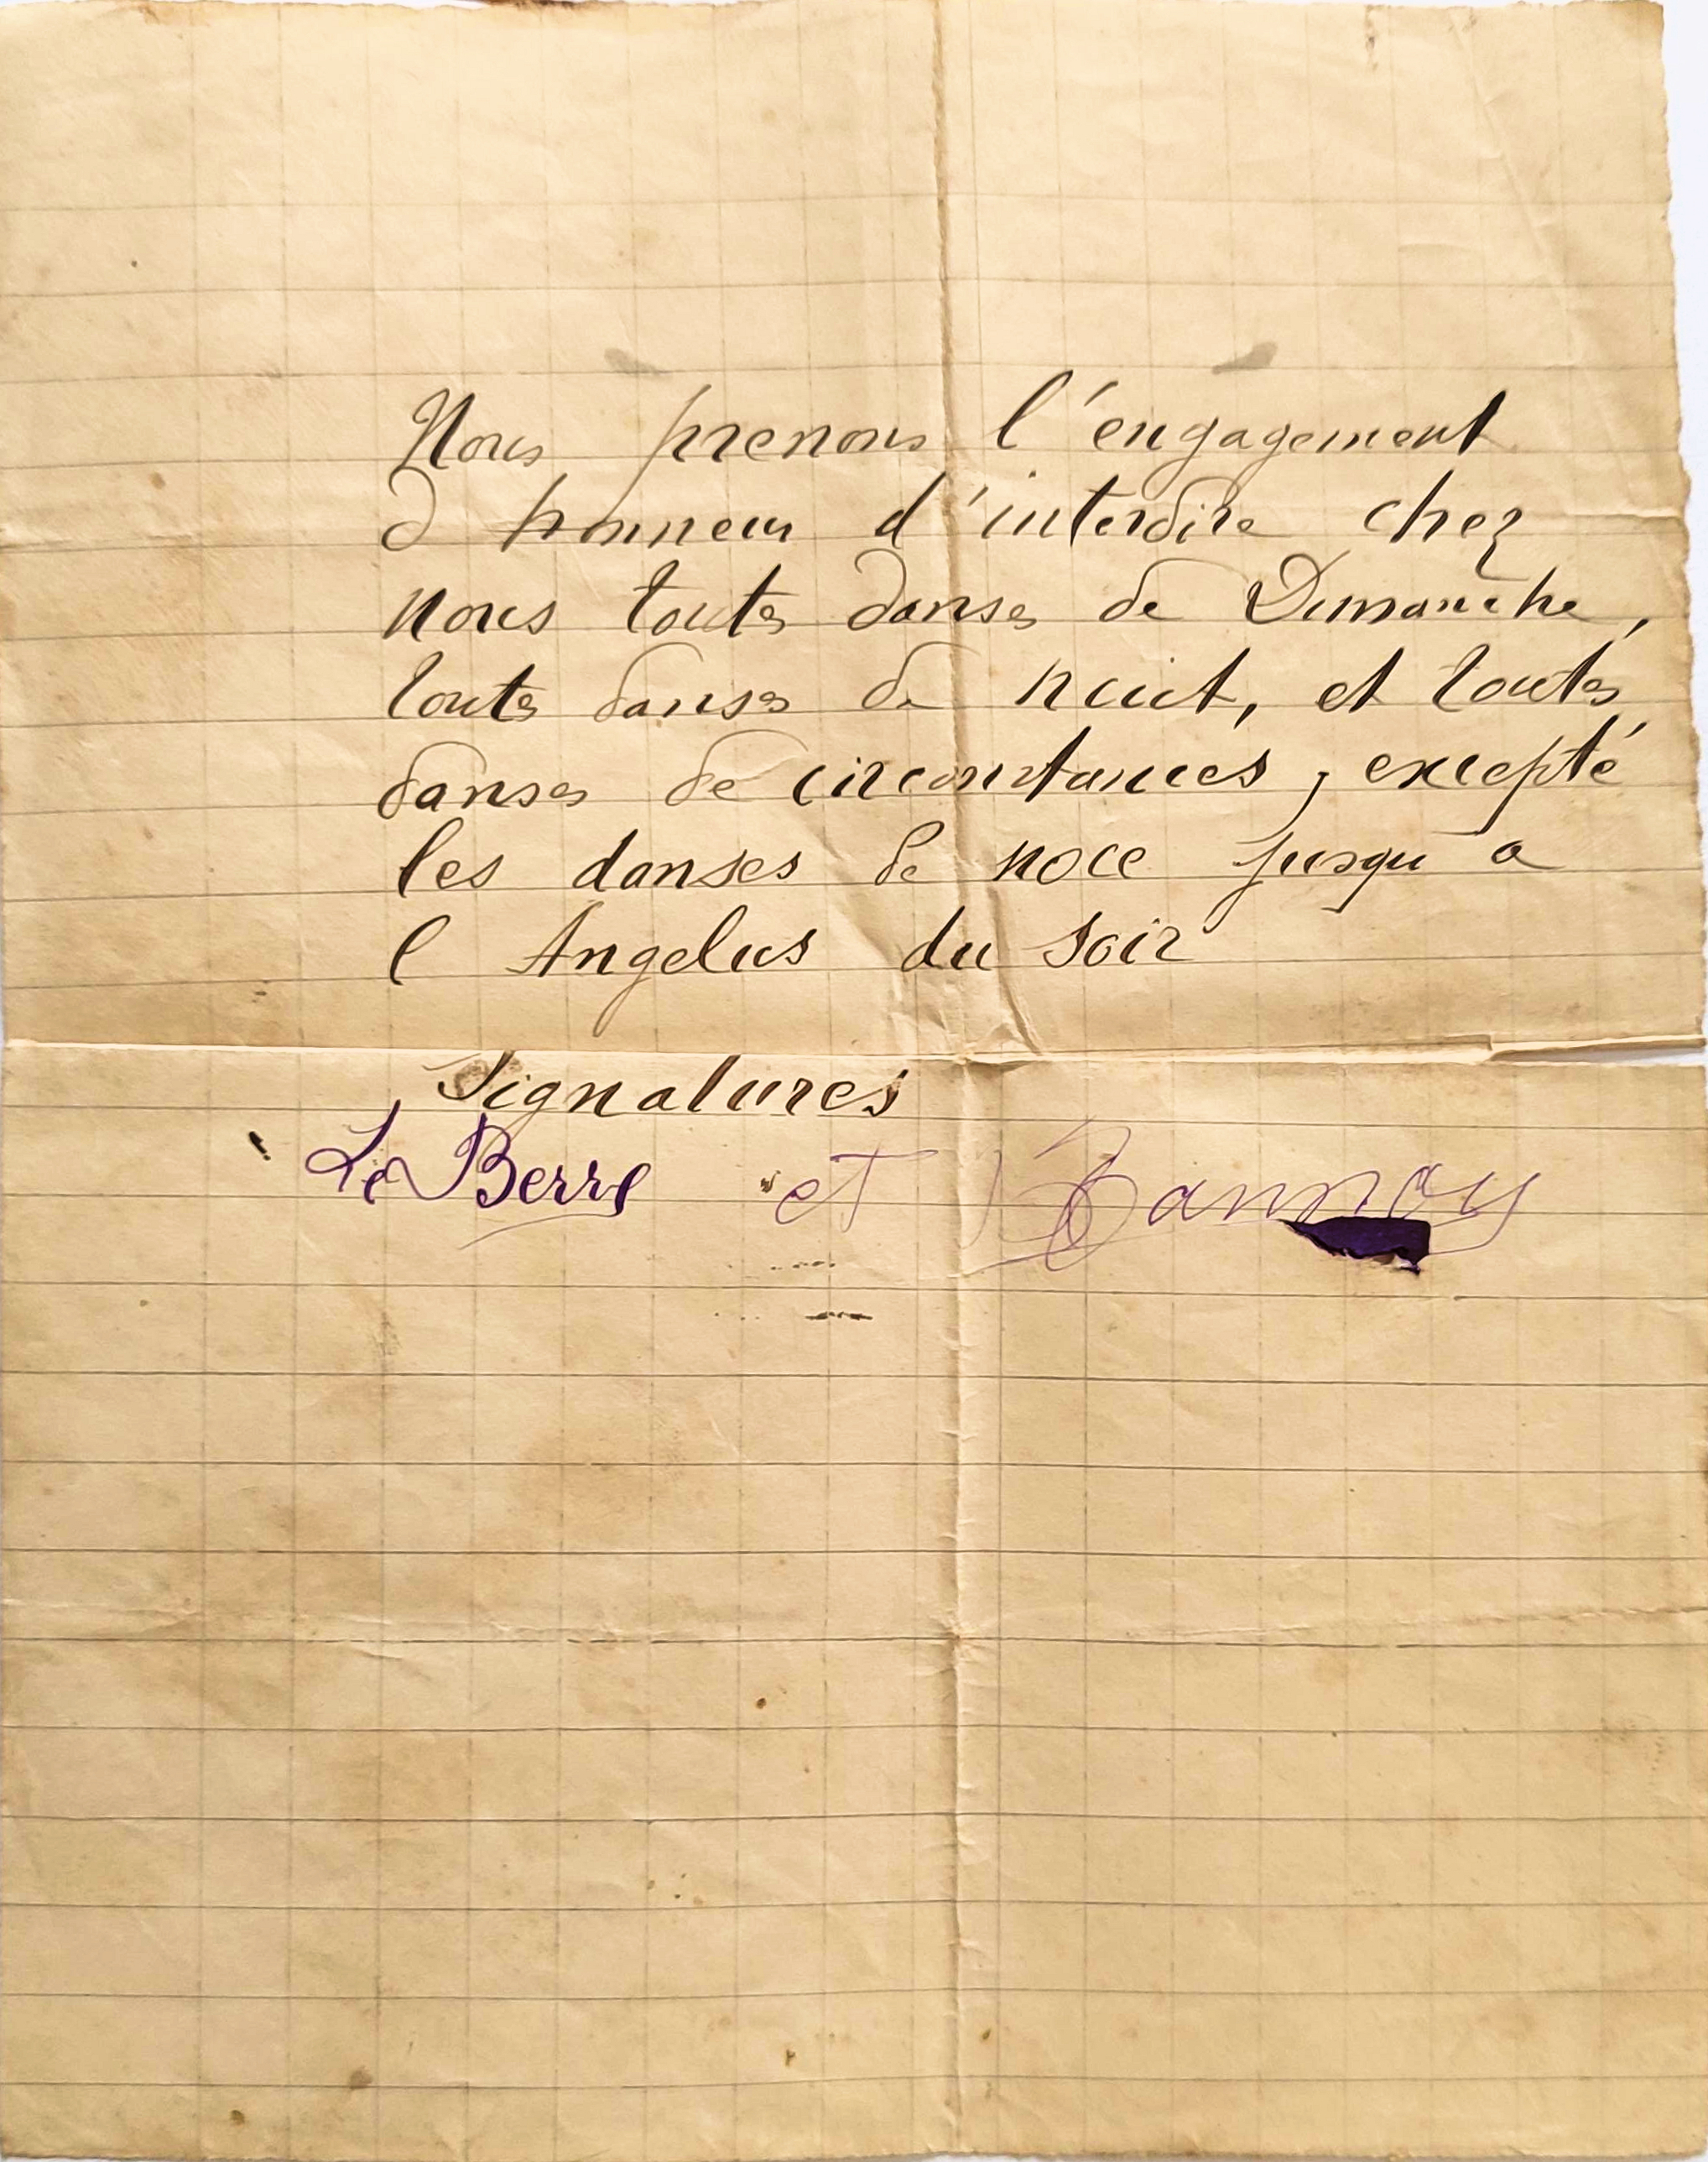 Nous prenons l'engagement
d honneur d'interdire chez
nous toutes danses de Dimanche,
toutes danses de nuit, et toutes
danses de circonstances, excepté
les danses de noce jusqu'a
l Angelus du soir
Signatures
Le Berre et Bannay